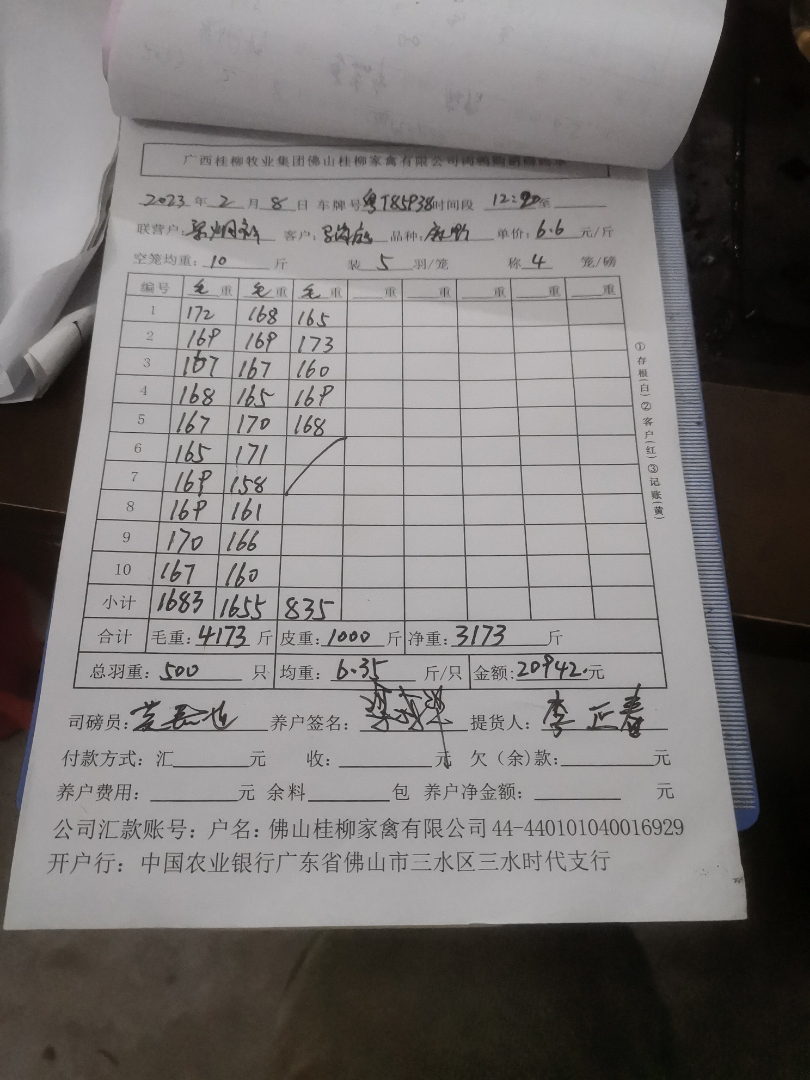 广西桂柳牧业集团佛山桂柳家禽有限公司肉鸭购销
2023 年 2 月 8 日 车牌号 粤T85938 时间段 12:20 至
联营户: 客户: 品种: 麻鸭 单价: 6.6 元/斤
空笼均重: 10 斤 装 5 羽/笼 称 4 笼/磅
编号 毛 重 毛 重 毛 重 重 重 重 重 重
1 172 168 165
2 169 169 173
3 167 167 160
4 168 165 169
5 167 170 168
6 165 171
7 169 158
8 169 161
9 170 166
10 167 160
小计 1683 1655 835
合计 毛重: 4173 斤 皮重: 1000 斤 净重: 3173 斤
总羽重: 500 只 均重: 6.35 斤/只 金额: 20942. 元
司磅员: 养户签名: 提货人: 李正春
付款方式: 汇 元 收: 元 欠(余)款: 元
养户费用: 元 余料 包 养户净金额: 元
公司汇款账号: 户名: 佛山桂柳家禽有限公司 44-440101040016929
开户行: 中国农业银行广东省佛山市三水区三水时代支行
①存根(白)②客户(红)③记账(黄)